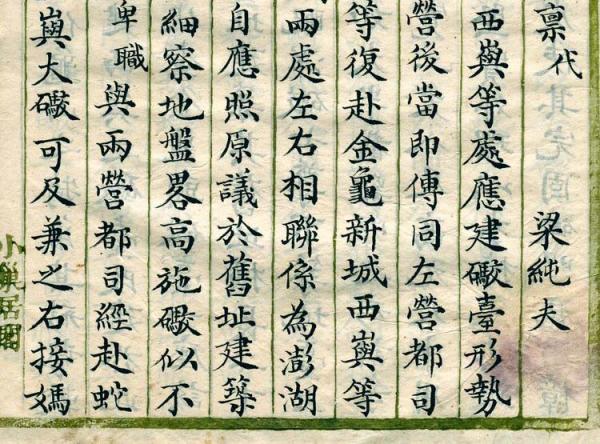 稟代　梁純夫
西嶼等處應建礮臺形勢
營後當即傳同左營都司
等復赴金龜新城西嶼等
兩處左右相聯係為澎湖
自應照原議於舊址建築
細察地盤畧高施礮似不
卑職與兩營都司經赴蛇
嶼大礮可及兼之右接媽
小巢居閣